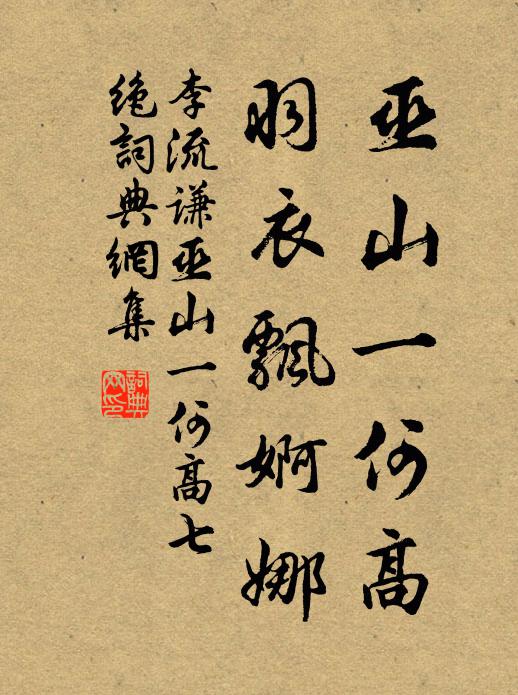 巫山一何高
羽衣飄婀娜
李流谦巫山一何高七
绝詞典網集
詞典網印